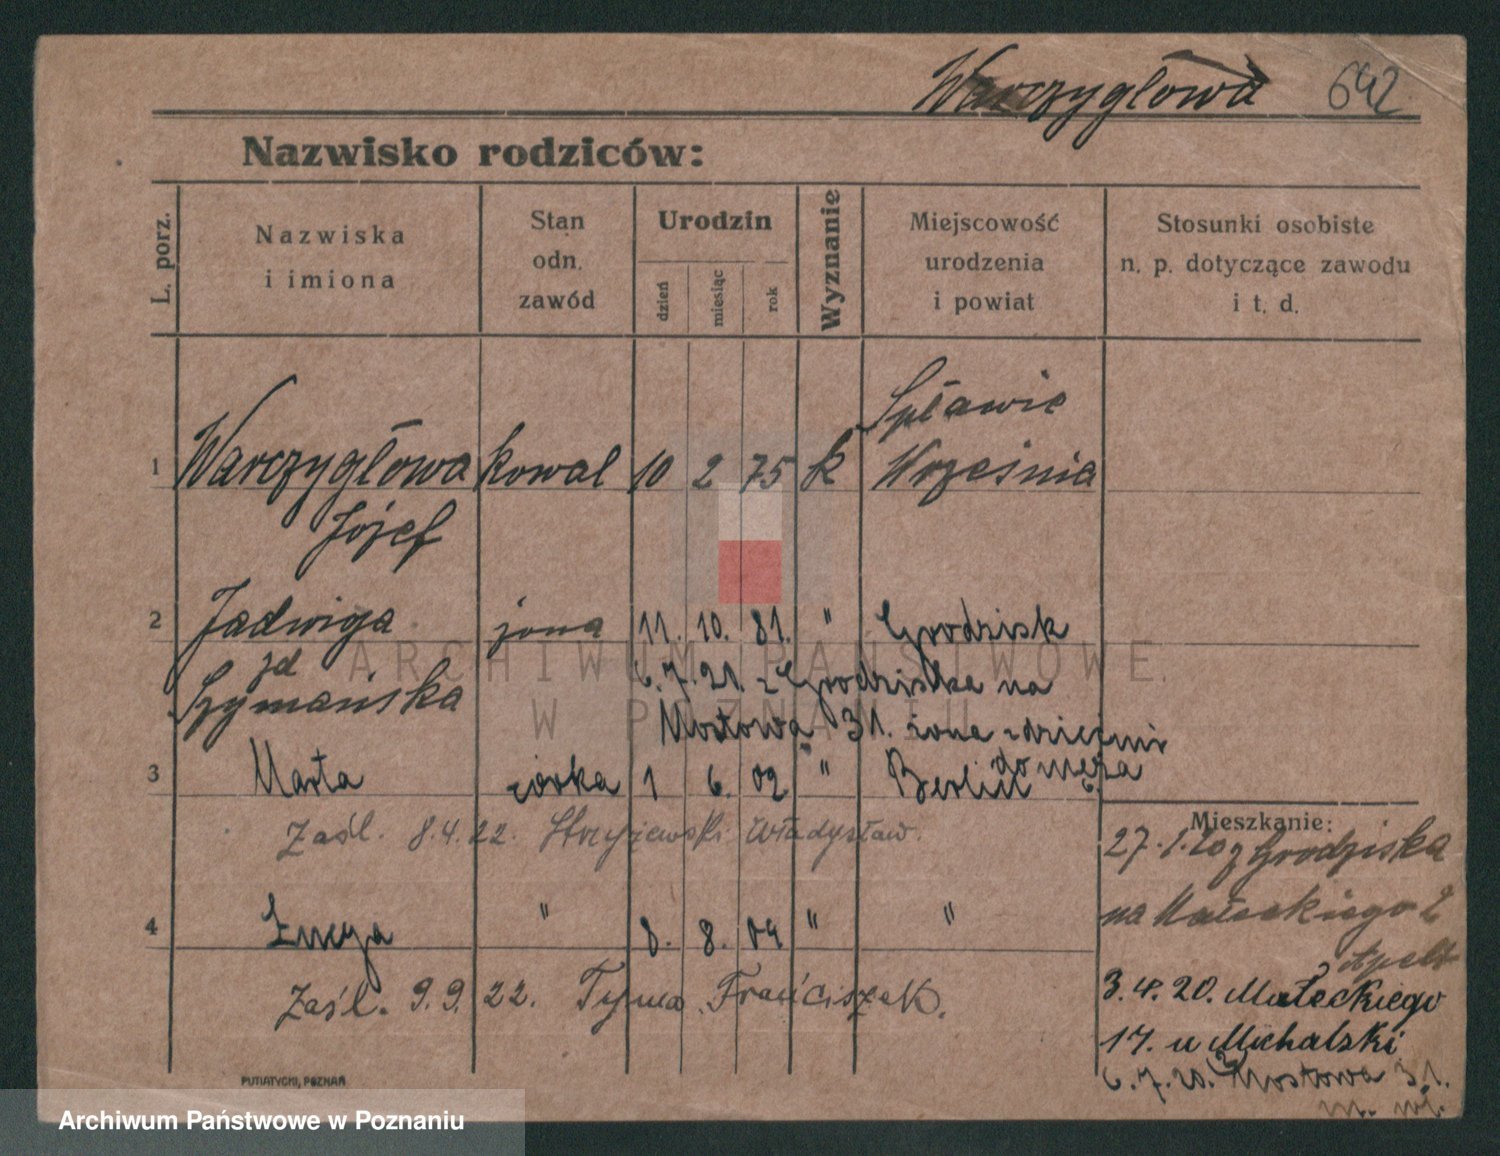 Warczygłowa 642
Nazwisko rodziców:
L. porz.
Nazwiska
i imiona
Stan
odn.
zawód
Urodzin
dzień
miesiąc
rok
Wyznanie
Miejscowość
urodzenia
i powiat
Stosunki osobiste
n. p. dotyczące zawodu
i t. d.
Spławie
1 Warczygłowa kowal 10 2 75 k Września
Józef
2 Jadwiga żona 11. 10. 81. " Grodzisk
zd
Szymańska
6.7.21. z Grodziska na
Mostowa 31. żona z dziećmi
do męża
3 Marta córka 1 6. 02 " Berlin
Zaśl. 8.4.22. Strzyżewski Władysław.
4 Łucja " 8. 8. 04 " "
Zaśl. 9.9.22. Tyma Franciszek.
Mieszkanie:
27.1.20 z Grodziska
na Małeckiego 2
Apelt
3.4.20. Małeckiego
17. u Michalski
6.7.20. Mostowa 31.
m. wł.
PUTIATYCKI, POZNAŃ
ARCHIWUM PAŃSTWOWE
W POZNANIU
Archiwum Państwowe w Poznaniu